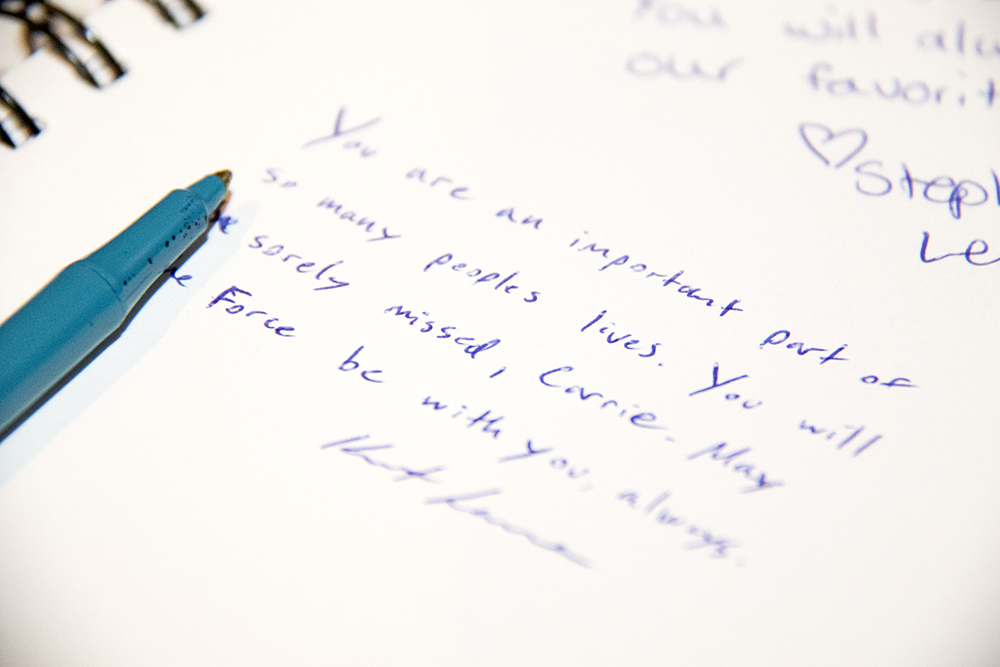 You will alw
our favorit
♡ Steph
Le
You are an important part of
so many peoples lives. You will
e sorely missed, Carrie. May
e Force be with you, always.